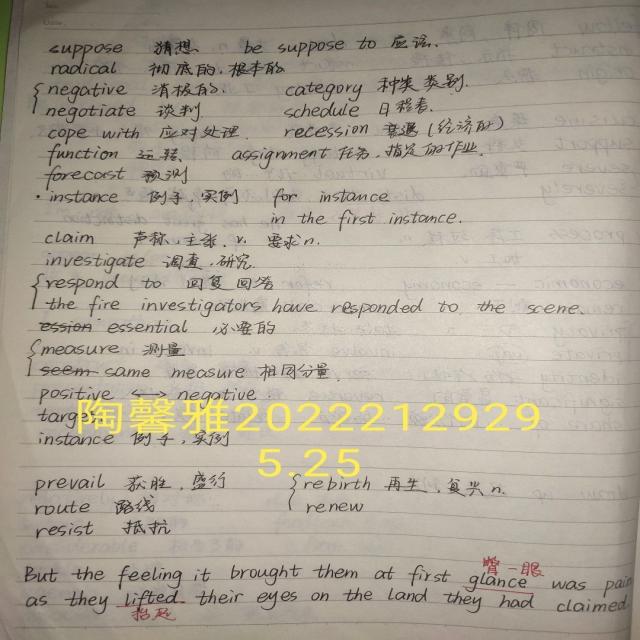 suppose 猜想 be suppose to 应该.
radical 彻底的,根本的
negative 消极的. category 种类 类别.
negotiate 谈判 schedule 日程表.
cope with 应对处理. recession 衰退(经济的)
function 运转. assignment 任务,指定的作业.
forecast 预测
· instance 例子,实例 for instance
in the first instance.
claim 声称,主张,v. 要求n.
investigate 调查,研究.
respond to 回复 回答
the fire investigators have responded to the scene.
essential 必要的
measure 测量
seem same measure 相同分量.
positive <-> negative.
target
陶馨雅2022212929
instance 例子,实例
5.25
prevail 获胜,盛行 rebirth 再生,复兴n.
route 路线 renew
resist 抵抗
瞥一眼
But the feeling it brought them at first glance was pain
as they lifted their eyes on the land they had claimed
抬起